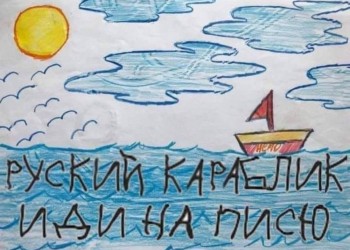 РУСКИЙ КАРАБЛИК
ИДИ НА ПИСЮ